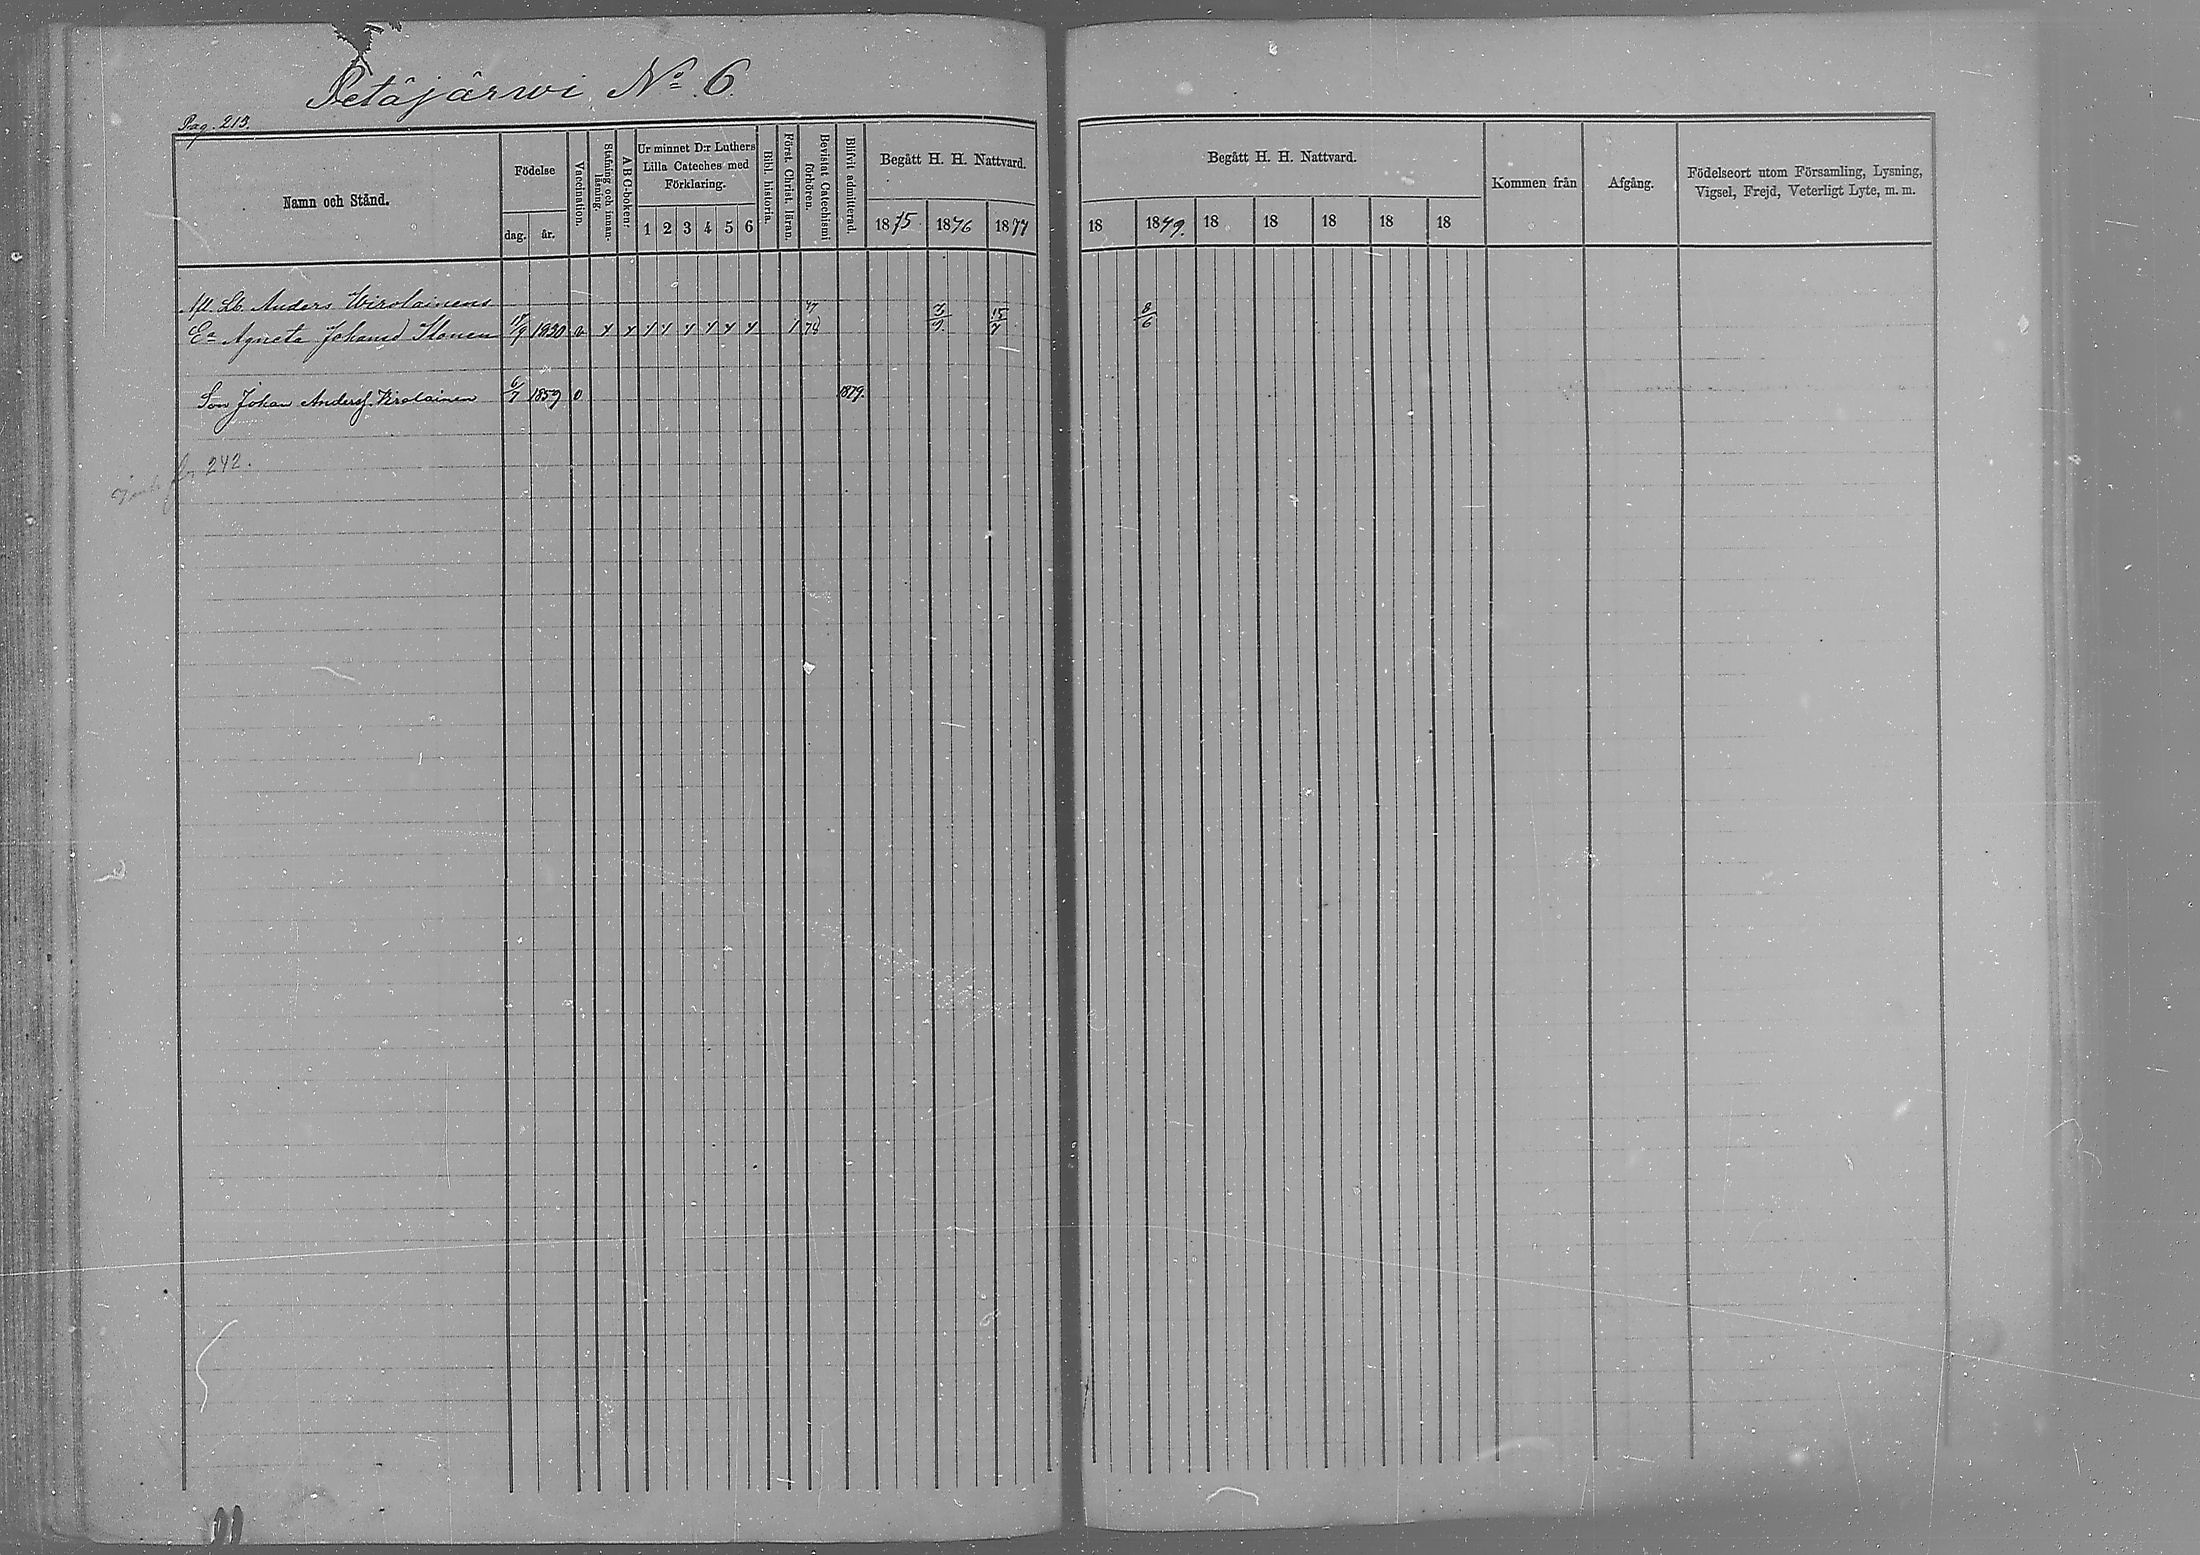 Petäjärwi No. 6.
Pag. 213.
Namn och Stånd.
Födelse
dag.
år.
Vaccination.
Stafning och innanläsning.
A B C-boken:
Ur minnet D:r Luthers
Lilla Cateches med
Förklaring.
1 2 3 4 5 6
Bibl. historia.
Först. Christ. läran.
Bevistat Catechismi
förhören.
Blifvit admitterad.
Begått H. H. Nattvard.
1875. 1876 1877
Begått H. H. Nattvard.
18 1879. 18 18 18 18 18
Kommen från
Afgång.
Födelseort utom Församling, Lysning,
Vigsel, Frejd, Veterligt Lyte, m. m.
Afl. Lb. Anders Wirolainens
Ea Agneta Johansd Ilonen 1820 15/7 8/6
Son Johan Andersf. Virolainen 6/7 1859 0 1879.
242.